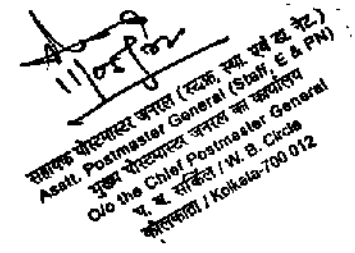 सहायक पोस्टमास्टर जनरल (स्टाफ, स्था. एवं ख. नेट.)
Asstt. Postmaster General (Staff, E & PN)
मुख्य पोस्टमास्टर जनरल का कार्यालय
O/o the Chief Postmaster General
प. बं. सर्किल / W. B. Circle
कोलकाता / Kolkata-700 012